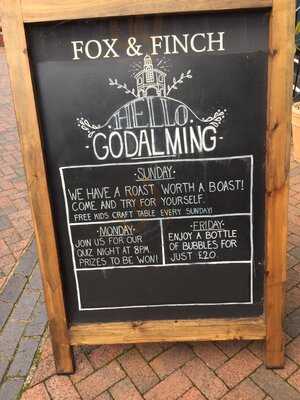 FOX & FINCH
HELLO
GODALMING
·SUNDAY·
WE HAVE A ROAST WORTH A BOAST!
COME AND TRY FOR YOURSELF.
FREE KIDS CRAFT TABLE EVERY SUNDAY!
·MONDAY·
JOIN US FOR OUR
QUIZ NIGHT AT 8PM.
PRIZES TO BE WON!
·FRIDAY·
ENJOY A BOTTLE
OF BUBBLES FOR
JUST £20.